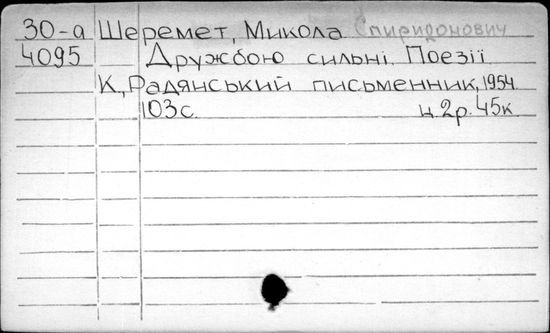 30-а Шеремет, Микола Спиридонович
4095 Дружбою сильні. Поезії.
К., Радянський письменник, 1954.
103с. ц. 2р. 45к.